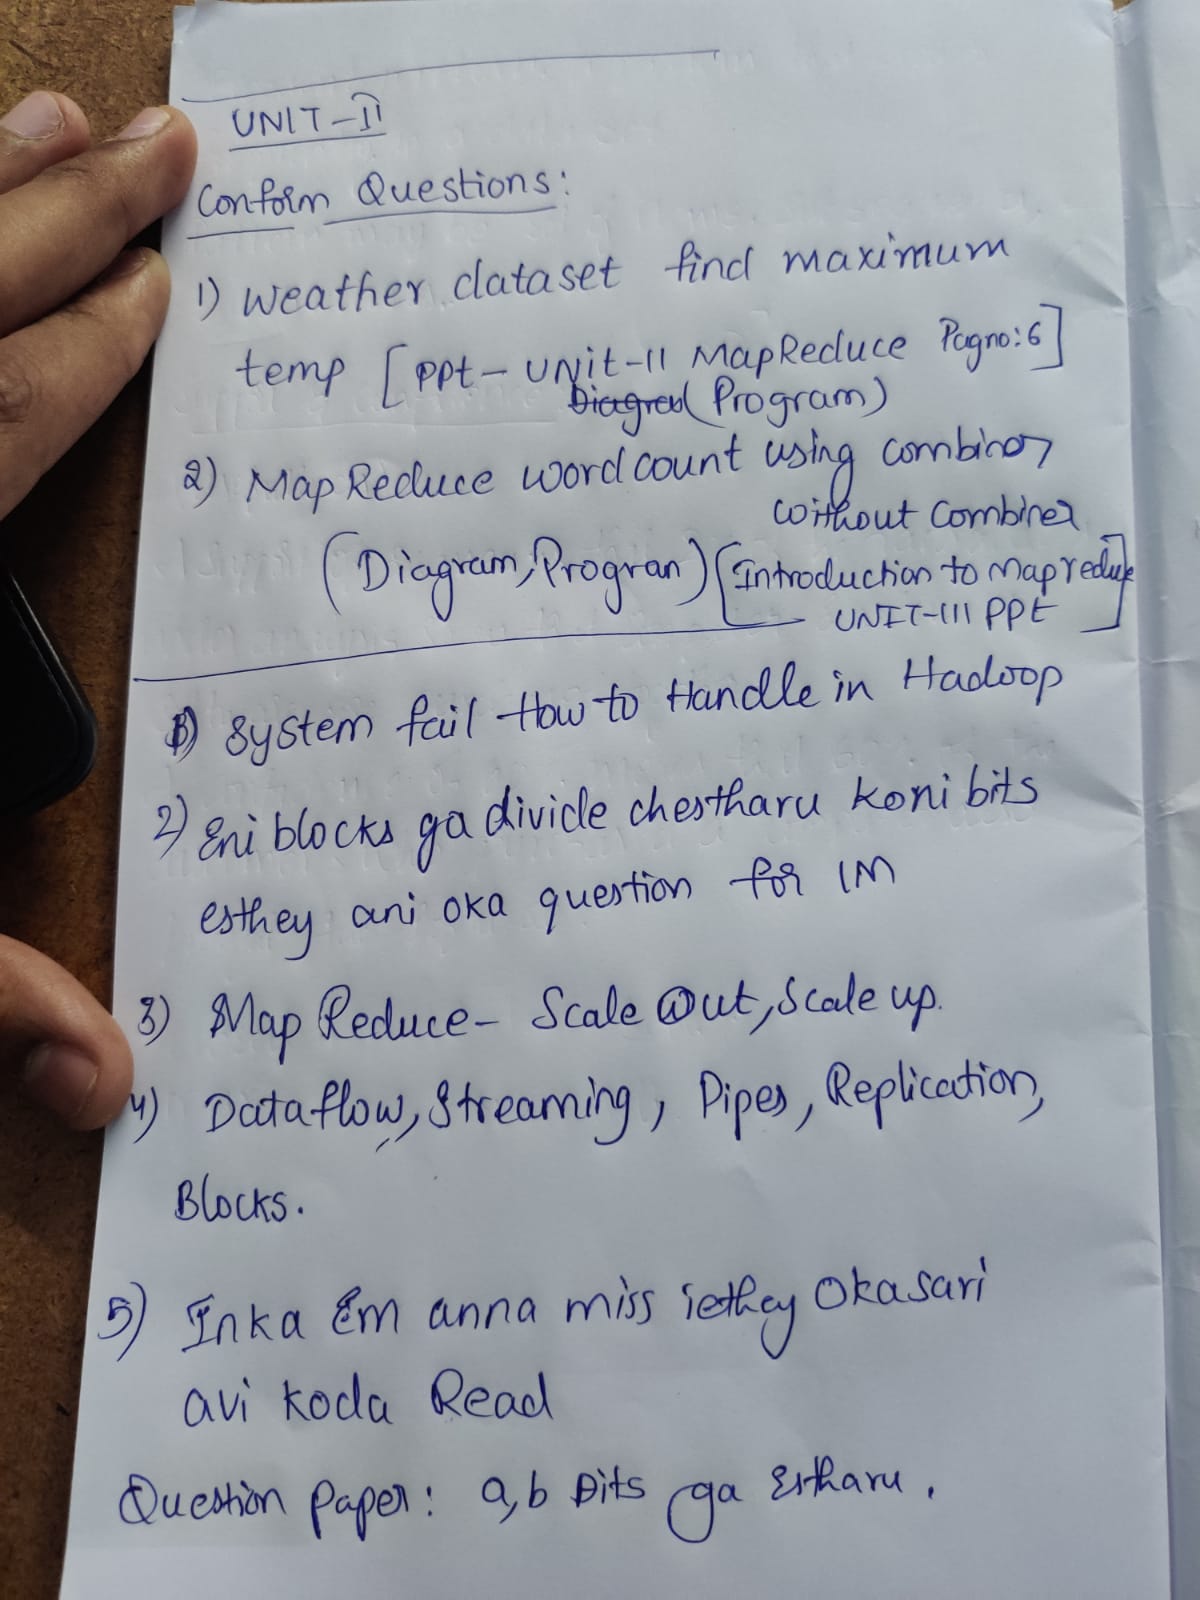 UNIT-II
Conform Questions:
1) Weather dataset find maximum
temp [PPt- UNit-II MapReduce Pagno:6]
(Program)
2) Map Reduce word count using combiner
without Combiner
(Diagram, Program) [Introduction to Mapreduce
UNIT-III PPt ]
1) System fail How to Handle in Hadoop
2) Eni blocks ga divide chestharu koni bits
esthey ani oka question for 1M
3) Map Reduce- Scale Out, Scale up.
4) Dataflow, Streaming, Pipes, Replication,
Blocks.
5) Inka Em anna miss iethey Okasari
avi koda Read
Question paper: a,b Bits ga Estharu.